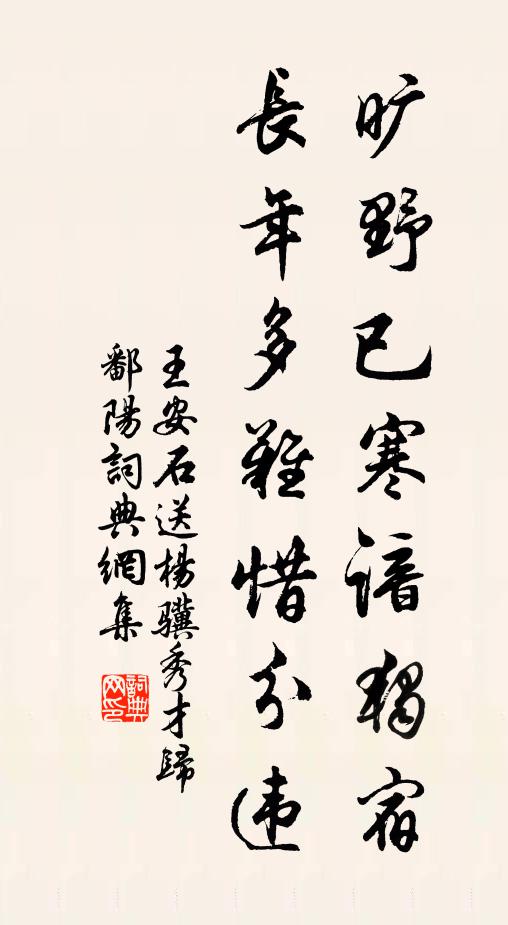 旷野已寒諳獨宿
長年多難惜分违
王安石送楊驥秀才歸
鄱陽詞典網集
詞典网印